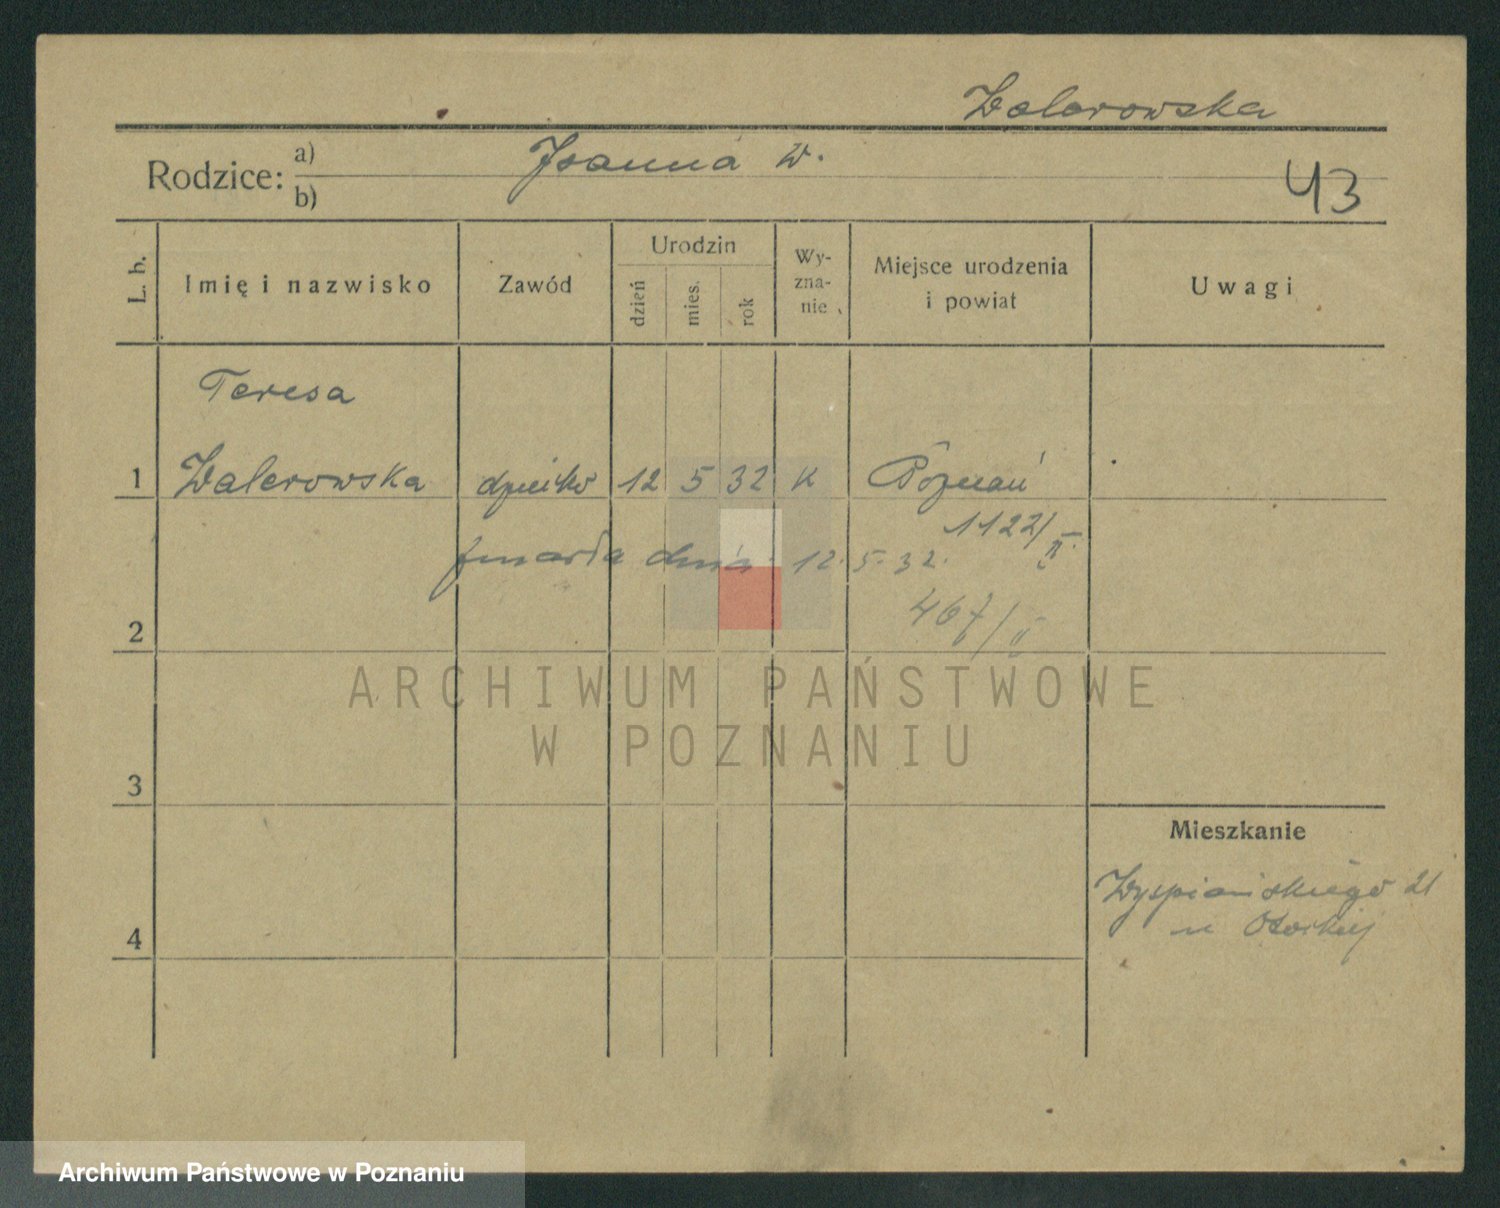 Walerowska
Rodzice: a) Joanna W.
b)
43
L. b.
Imię i nazwisko
Zawód
Urodzin
dzień
mies.
rok
Wy-
zna-
nie
Miejsce urodzenia
i powiat
Uwagi
Teresa
1 Walerowska dziecko 12 5 32 K Poznań
1122/II.
zmarła dnia 12. 5. 32.
467/II
2
3
4
Mieszkanie
Wyspiańskiego 21
u
ARCHIWUM PAŃSTWOWE
W POZNANIU
Archiwum Państwowe w Poznaniu